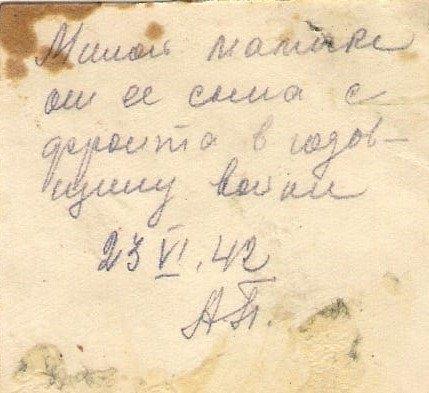 Милой мамаке
от ее сына с
фронта в годов-
щину войны
23 VI. 42
АП.